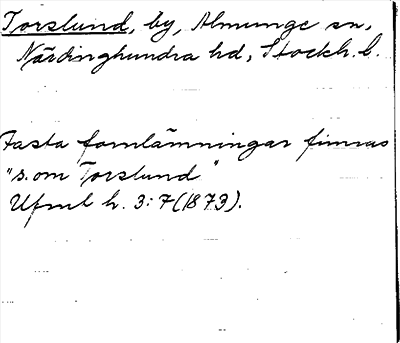 Torslund, by, Almunge sn,
Närdinghundra hd, Stockh. l.
Fasta fornlämningar finnas
"s. om Torslund"
Ufmt h. 3: 7 (1873).